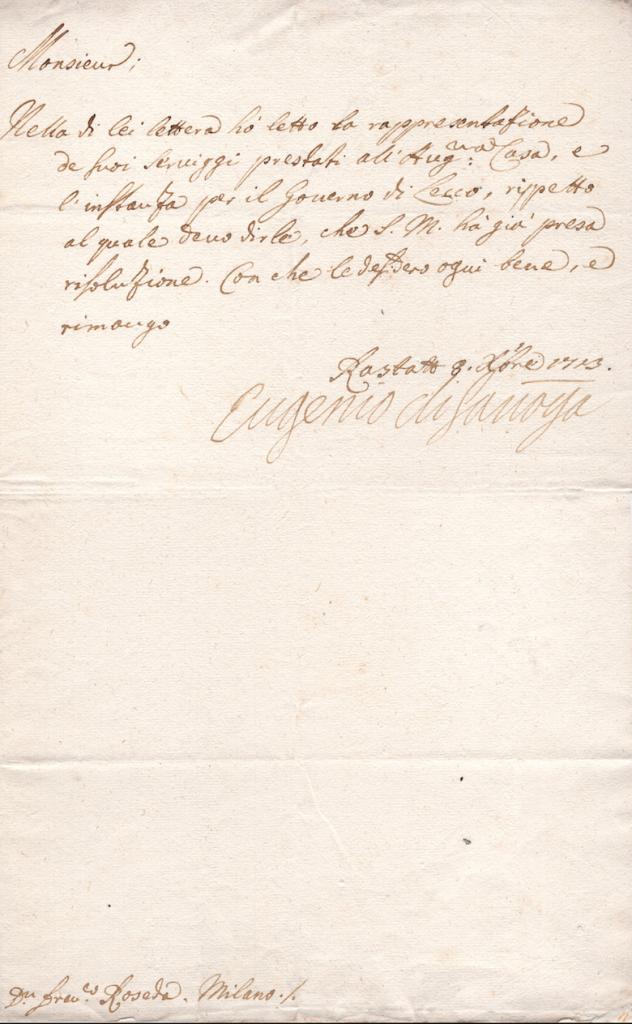 Monsieur;
Nella di lei lettera hò letto la rappresentazione
de suoi seruiggi prestati all'Aug.ma Casa, e
l'instanza per il Gouerno di Lecco, rispetto
al quale deuo dirle, che S. M. hà già presa
risoluzione. Con che le desidero ogni bene, e
rimango
Rastatt 8. Xbre 1713.
Eugenio di Sauoya
Dn Fran.co Roseda. Milano./.